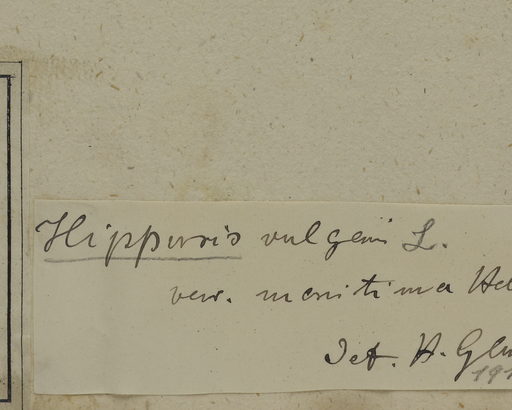 Hippuris vulgaris L.
var. maritima
Det. H.